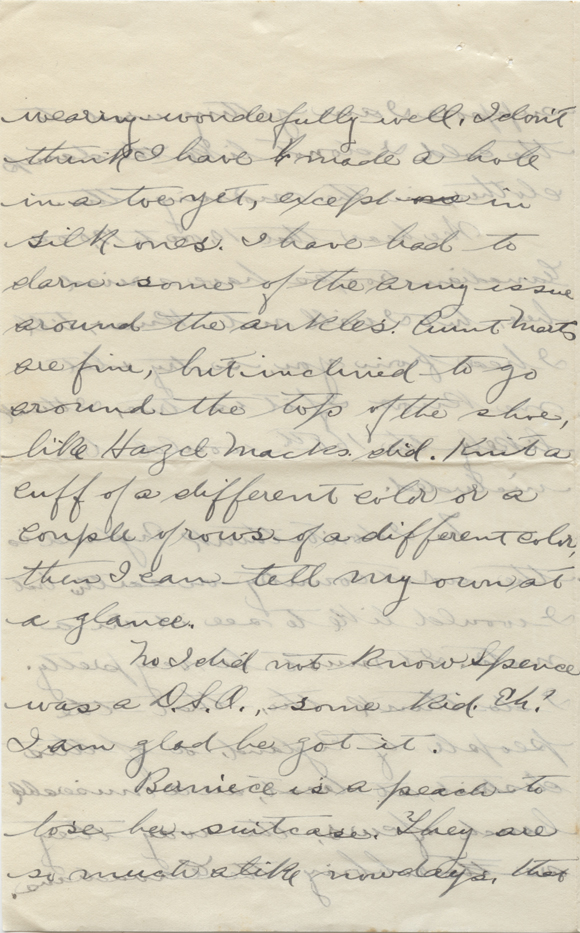 wearing wonderfully well. I don't
think I have made a hole
in a toe yet, except in
silk ones. I have had to
darn some of the army issue
around the ankles. Aunt Mats
are fine, but inclined to go
around the top of the shoe,
like Hazel Macks did. Knit a
cuff of a different color or a
couple of rows of a different color,
then I can tell my own at
a glance.
No I did not know Spence
was a D.S.O., some kid. Eh?
I am glad he got it.
Berniece is a peach to
lose her suitcase. They are
so much alike nowdays, that